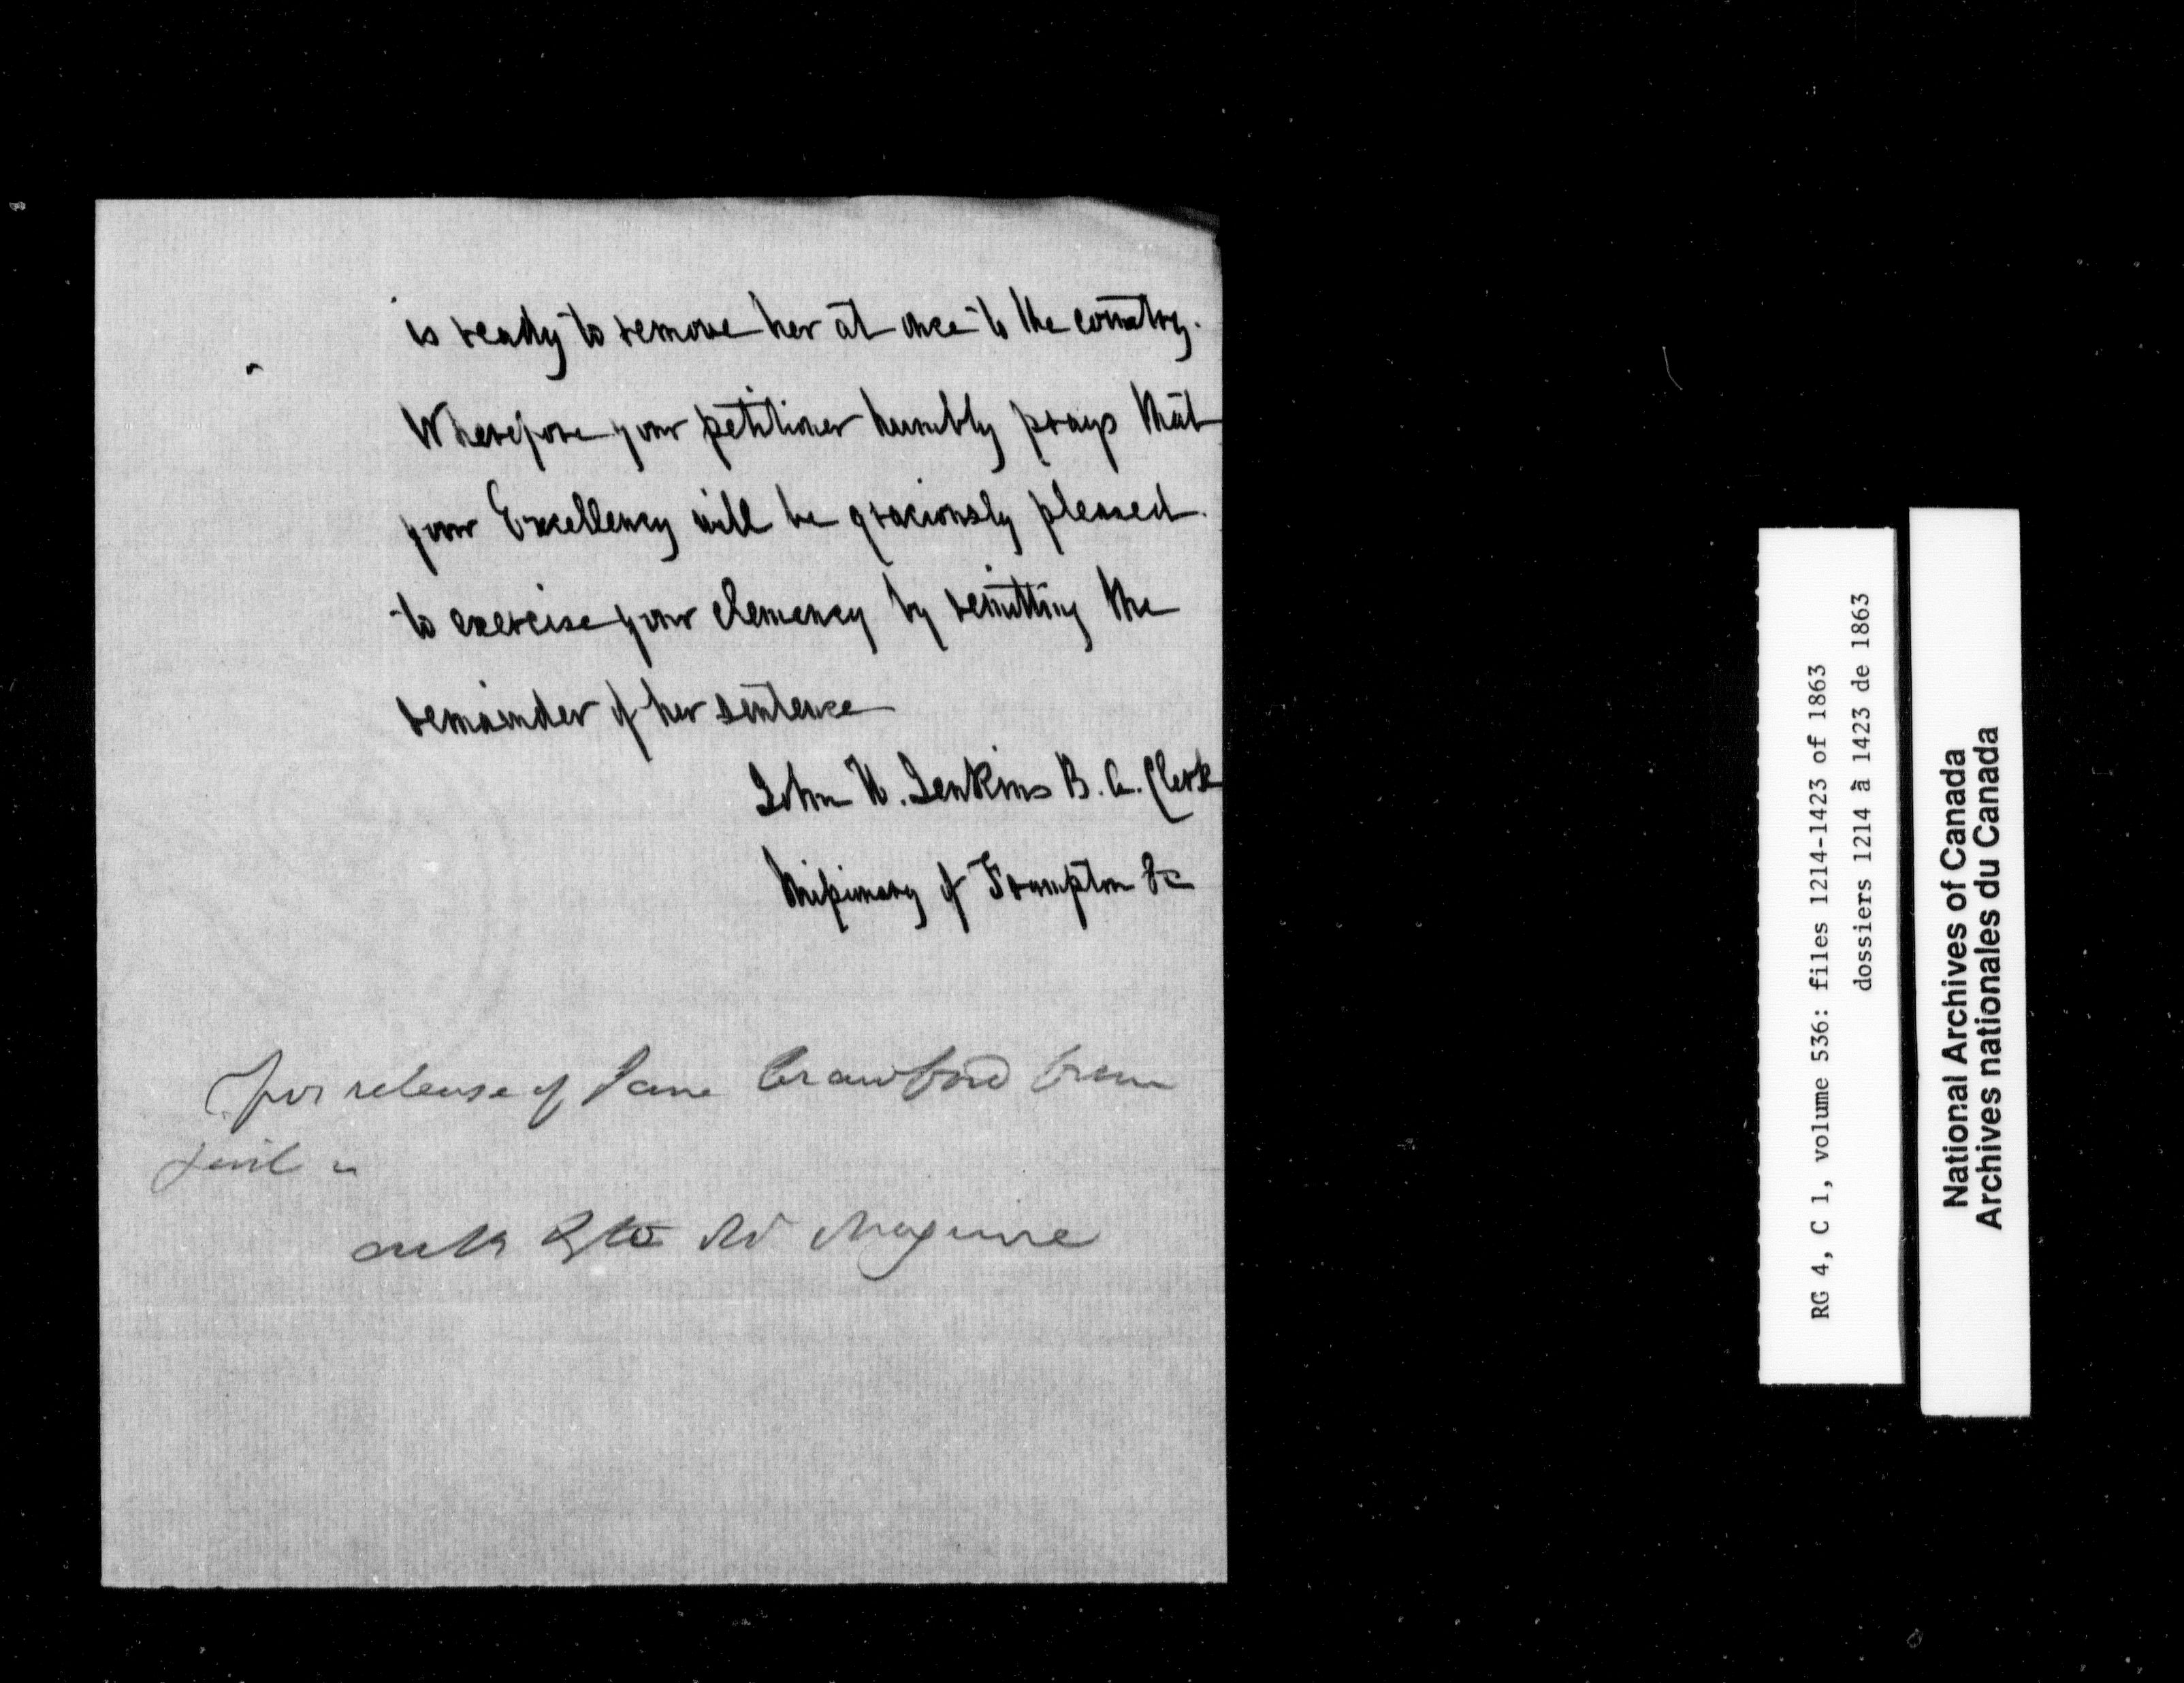 is ready to remove her at once to the country.
Wherefore your petitioner humbly prays that
your Excellency will be graciously pleased
to exercise your clemency by remitting the
remainder of her sentence
John N. Jenkins B. A. Clerk
Missionary of Frampton &c
for release of Jane Crawford from
jail
Maguire
RG 4, C 1, volume 536: files 1214-1423 of 1863
dossiers 1214 à 1423 de 1863
National Archives of Canada
Archives nationales du Canada